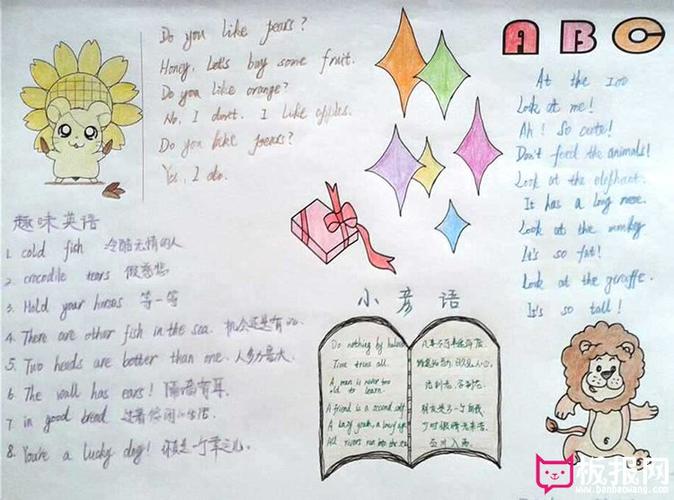 Do you like pears?
Honey, Let's buy some fruit.
Do you like orange?
No, I don't. I like apples.
Do you like pears?
Yes, I do.
ABC
At the zoo
Look at me!
Ah! So cute!
Don't feed the animals!
Look at the elephant.
It has a long nose.
Look at the monkey
It's so fat!
Look at the giraffe.
It's so tall!
趣味英语
1. cold fish 冷酷无情的人
2. crocodile tears 假慈悲
3. Hold your horses 等一等
4. There are other fish in the sea. 机会还是有的
5. Two heads are better than one. 人多力量大
6. The wall has ears! 隔墙有耳
7. in good bread 过着悠闲的生活
8. You're a lucky dog! 你真是一个幸运儿
小彦语
Do nothing by halves
Time tries all.
A man is never too
old to learn.
A friend is a second self
A lazy youth, a lousy age
All rivers run into the sea
凡事不可半途而废
活到老,学到老
朋友是另一个自我
百川入海
6 5
板报网
www.banbaowang.com